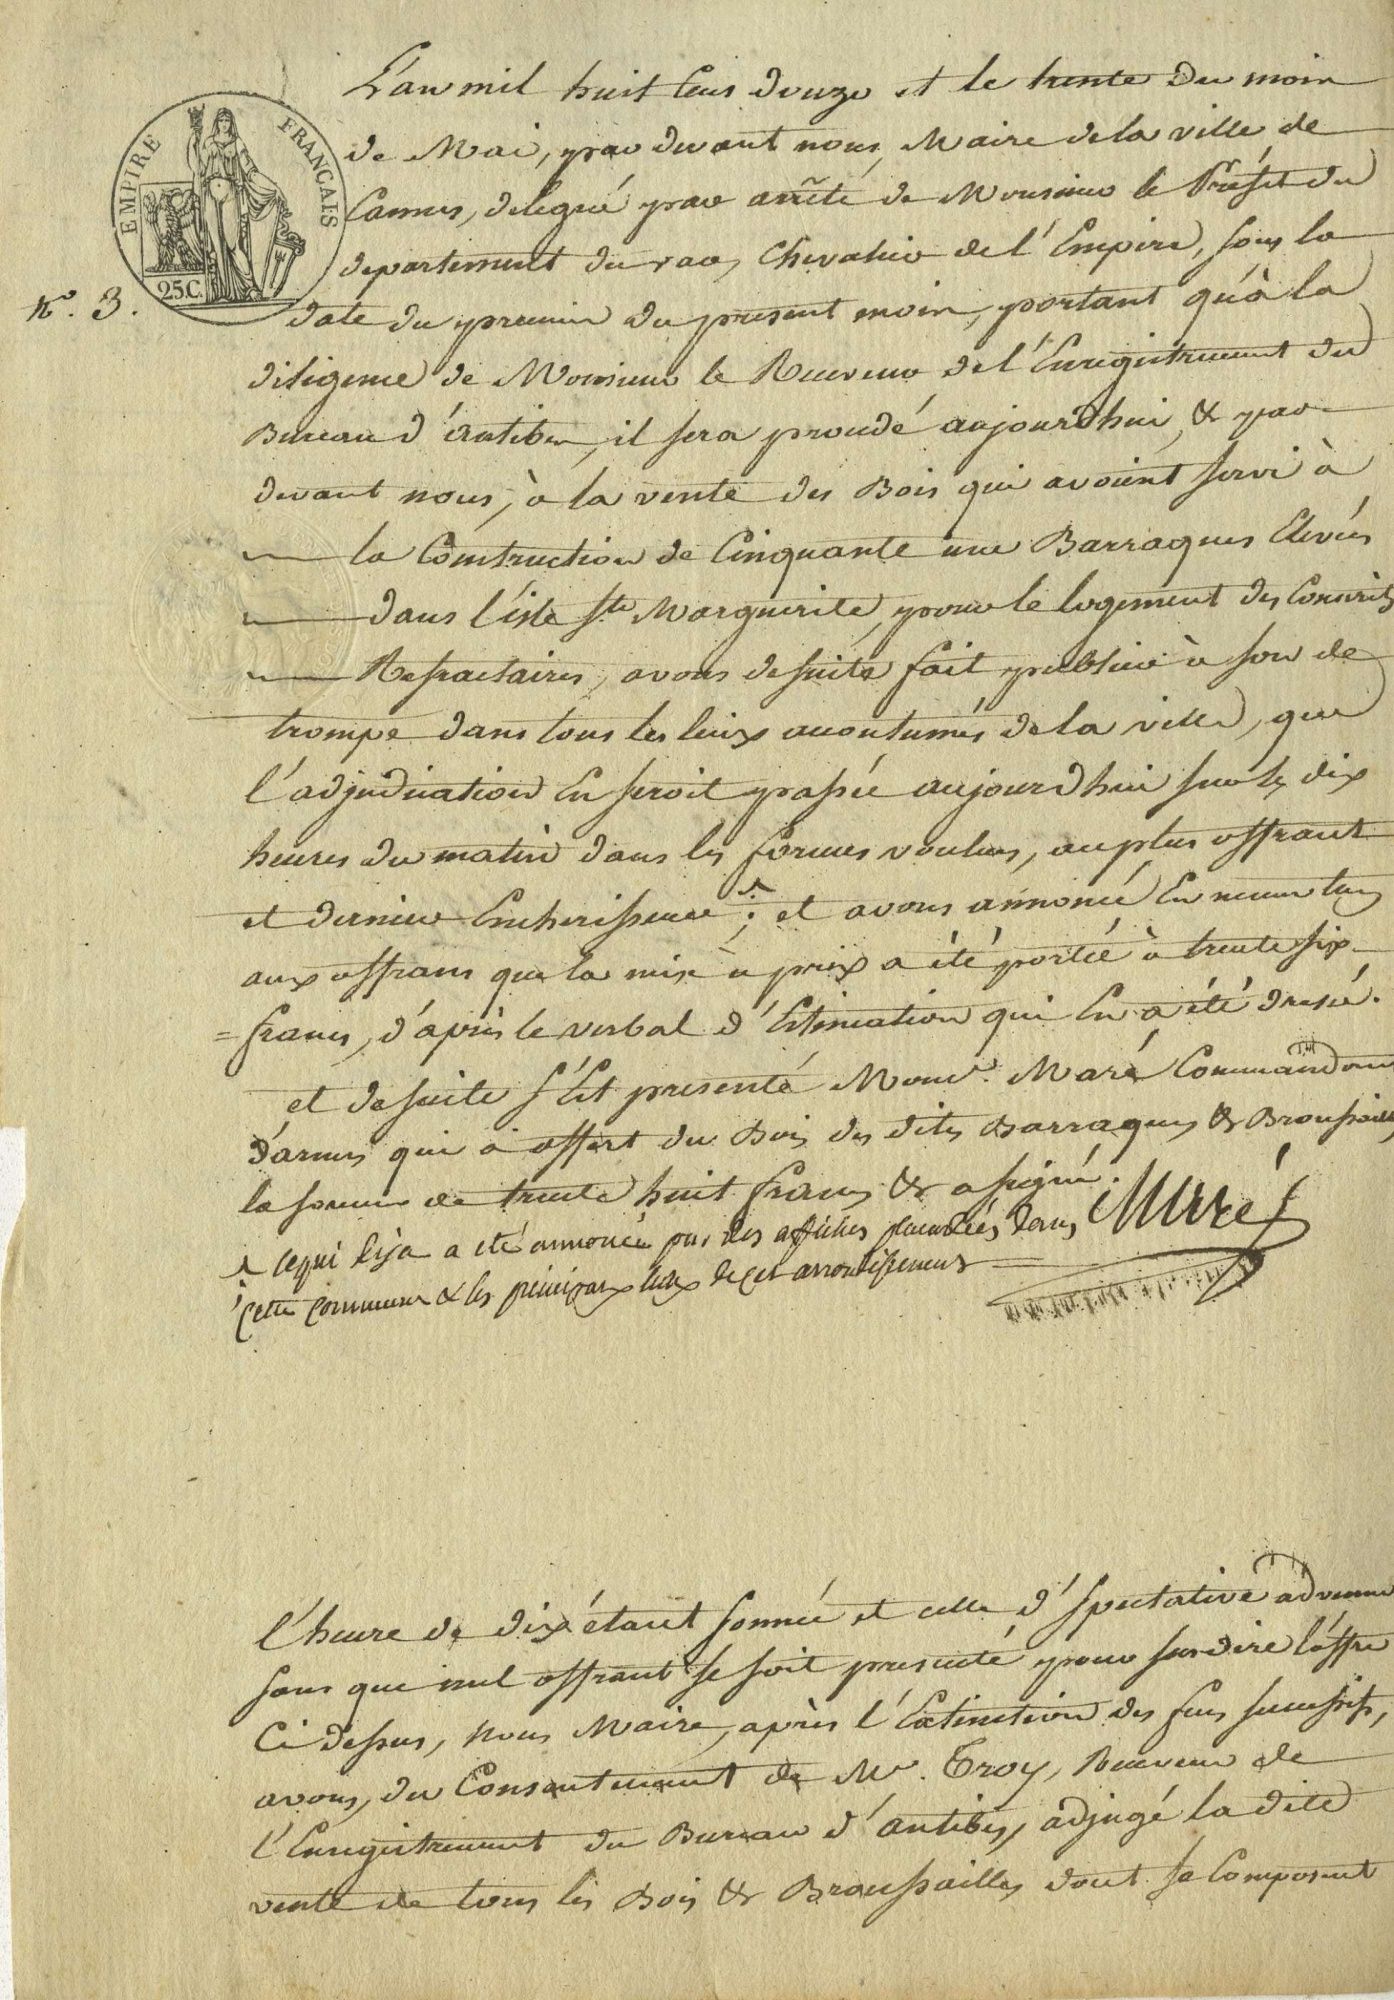 EMPIRE FRANCAIS
25.C.
N.° 3.
L'an mil huit cens douze et le trente du mois
de Mai, par devant nous, Maire de la ville de
Cannes, delegué par arrêté de Monsieur le Préfet du
departement du var, Chevalier de l'Empire, sous la
date du premier du present mois, portant qu'à la
diligence de Monsieur le Receveur de l'Enregistrement du
Bureau d'Antibes, il sera procédé aujourd'hui, & par
devant nous, à la vente des Bois qui avoient servi à
la Construction de Cinquante une Barraques Elevées
dans l'isle Ste Marguerite, pour le logement des Conscrits
Refractaires, avons desuite fait publier à son de
trompe dans tous les lieux accoutumés de la ville, que
l'adjudication En seroit passée aujourd'hui sur les dix
heures du matin dans les formes voulues, au plus offrant
et dernier Encherisseur ; et avons annoncé En meme tems
aux offrans que la mise à prix a été portée à trente six
francs, d'après le verbal d'Estimation qui En a été dressé.
et desuite s'est presenté Monsr. Maré Commandant
d'armes qui a offert du Bois des dites Barraques & Broussailles
la somme de trente huit francs & a signé.
Maré
ce qui deja a été annoncé par des affiches placardées dans
cette commune & les principaux lieux de cet arrondissement
l'heure de dix étant sonnée et celle d'Spectative advenue
sans que nul offrant se soit presenté pour surdire l'offre
Ci dessus, Nous Maire, après l'Extinction des feux successifs,
avons, du Consentement de Mr. Troy, Receveur de
l'Enregistrement du Bureau d'Antibes, adjugé la dite
vente de tous les Bois & Broussailles dont se Composent